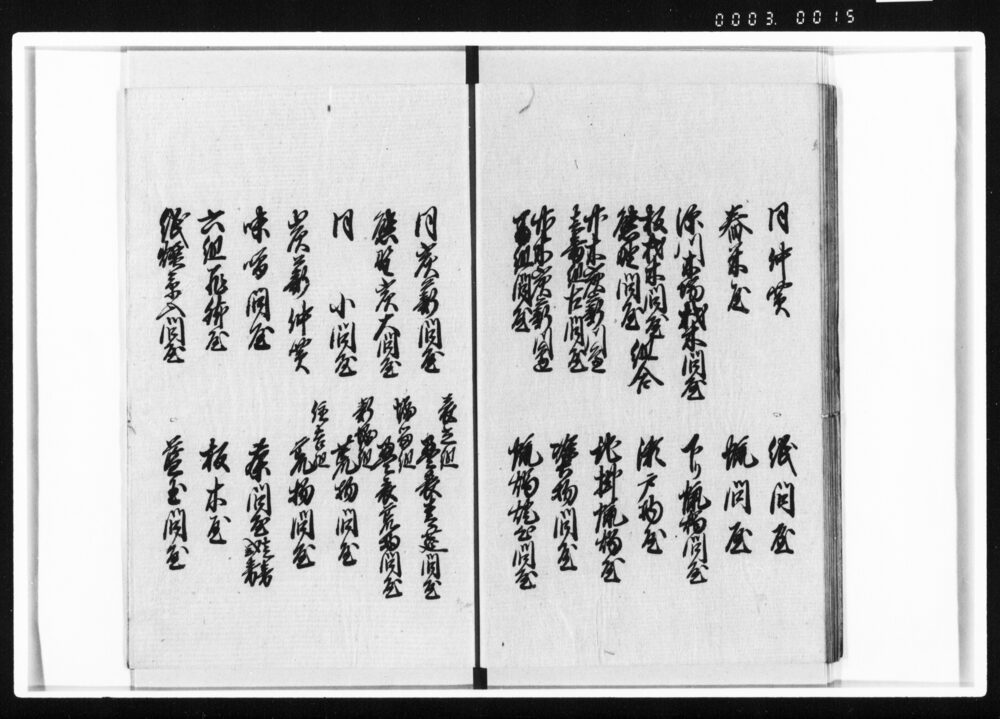 0003.0015
同仲買
舂米屋
深川木場材木問屋
板材木問屋
熊野問屋 組合
竹木炭薪川辺
壱番組古問屋
竹木炭薪川辺
番組問屋
紙問屋
蝋問屋
下り蝋燭問屋
瀬戸物屋
地掛蝋燭屋
物問屋
問屋
同炭薪問屋
熊野炭大問屋
同 小問屋
炭薪仲買
味噌問屋
六組飛脚屋
紙煙草入問屋
表店組
畳表青莚問屋
堀留組
畳表荒物問屋
新堀組
荒物問屋
住吉組
荒物問屋
茶問屋
板木屋
藍玉問屋